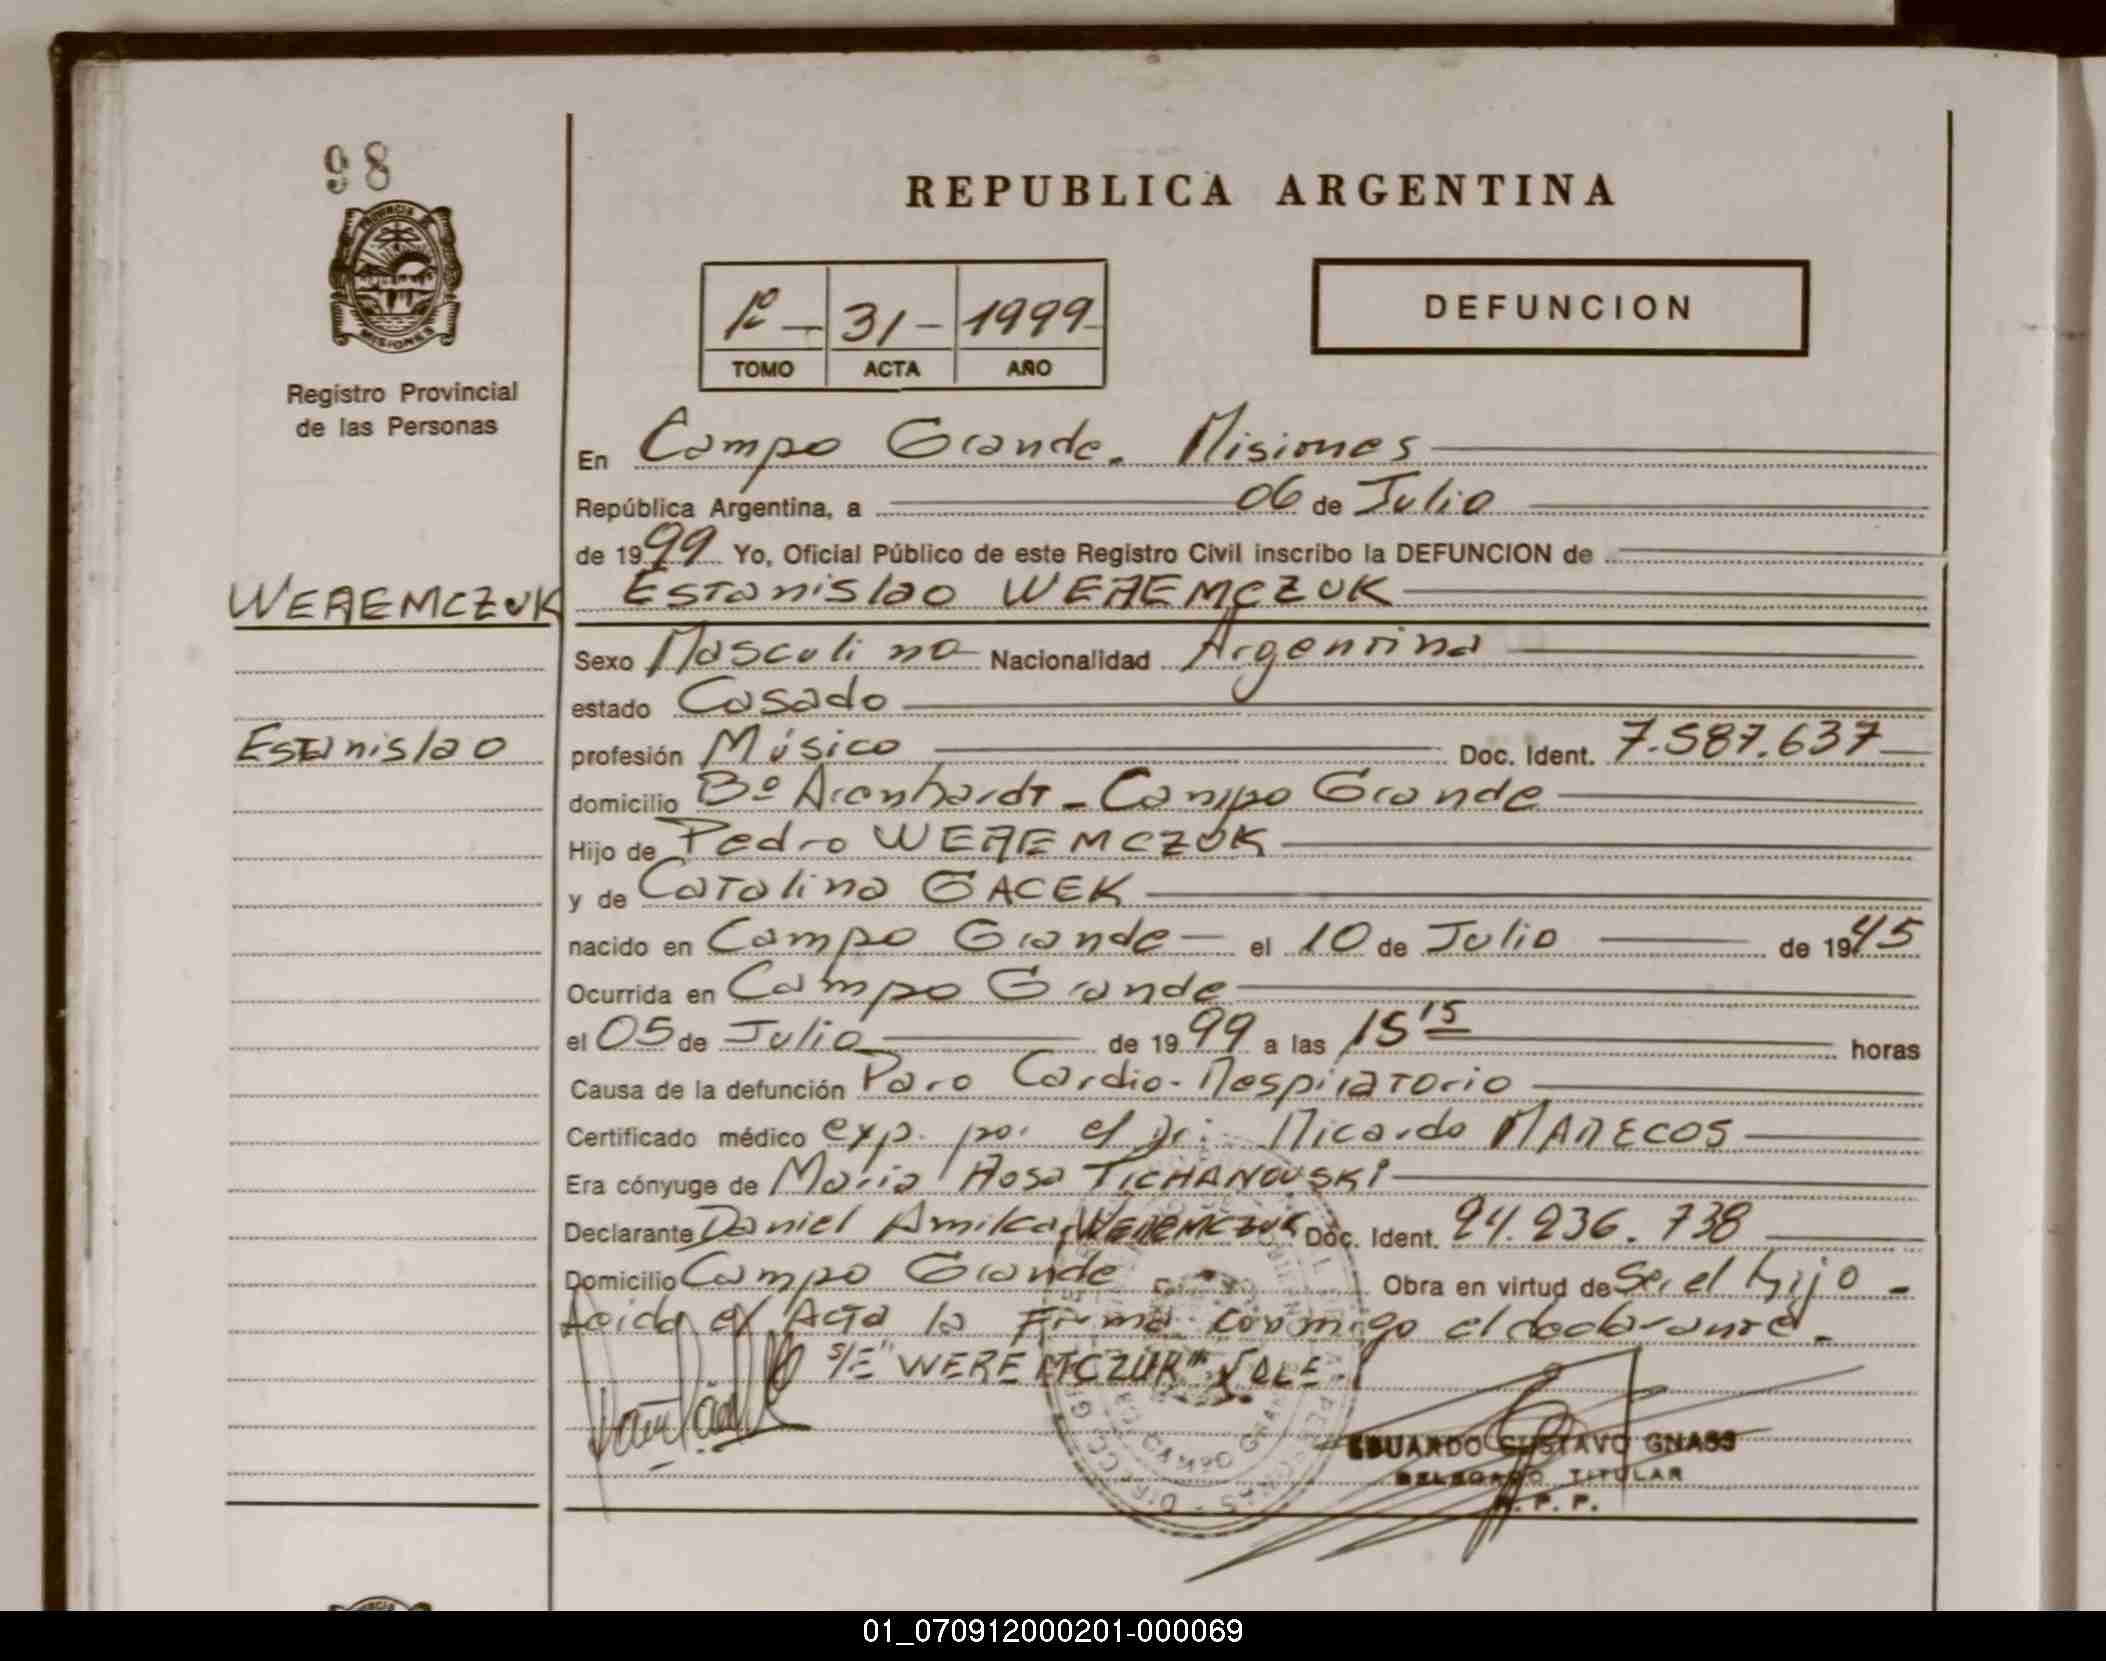 98
PROVINCIA DE
MISIONES
Registro Provincial
de las Personas
WEREMCZUK
Estanislao
REPUBLICA ARGENTINA
1º - 31 - 1999
TOMO ACTA AÑO
DEFUNCION
En Campo Grande. Misiones
República Argentina, a 06 de Julio
de 1999 Yo, Oficial Público de este Registro Civil inscribo la DEFUNCION de
Estanislao WEREMCZUK
Sexo Masculino Nacionalidad Argentina
estado Casado
profesión Músico Doc. Ident. 7.587.637
domicilio Bº Arenhardt - Campo Grande
Hijo de Pedro WEREMCZUK
y de Catalina GACEK
nacido en Campo Grande - el 10 de Julio de 1945
Ocurrida en Campo Grande
el 05 de Julio de 1999 a las 15 15 horas
Causa de la defunción Paro Cardio-Respiratorio
Certificado médico exp. por el Dr. Ricardo MARECOS
Era cónyuge de Maria Rosa TICHANOUSKI
Declarante Daniel Amilcar WEREMCZUK Doc. Ident. 24.236.738
Domicilio Campo Grande Obra en virtud de Ser el hijo -
Leida el Acta la Firma conmigo el declarante.
S/E "WEREMCZUK" VALE.
EDUARDO GUSTAVO GNASS
DELEGADO TITULAR
R. P. P.
CAMPO GRANDE
01_070912000201-000069